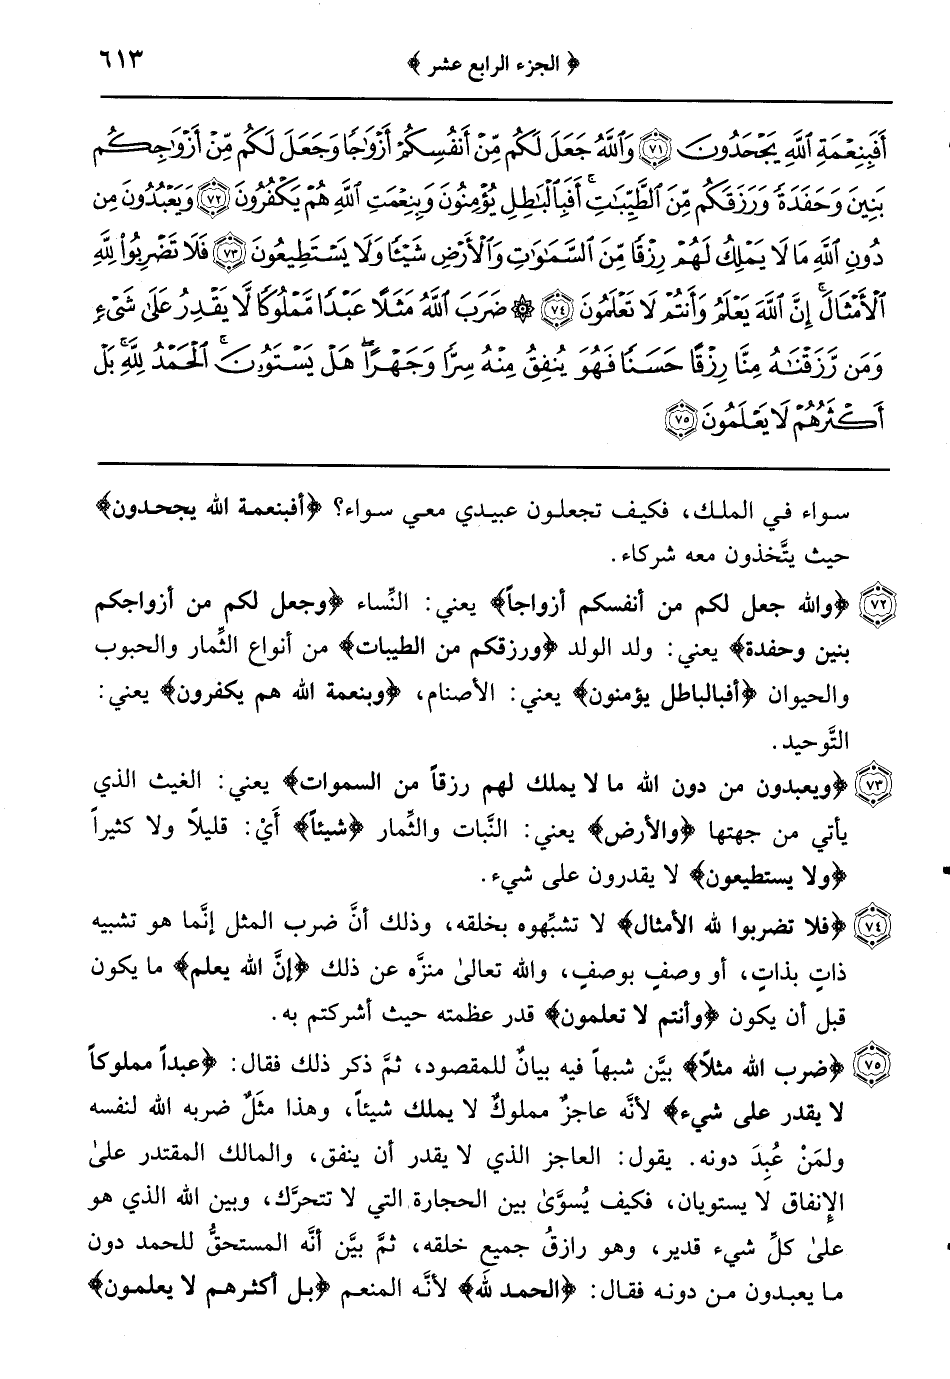 ﴿ الجزء الرابع عشر ﴾ ٦١٣
أَفَبِنِعْمَةِ ٱللَّهِ يَجْحَدُونَ ٧١ وَٱللَّهُ جَعَلَ لَكُم مِّنْ أَنفُسِكُمْ أَزْوَٰجًا وَجَعَلَ لَكُم مِّنْ أَزْوَٰجِكُم
بَنِينَ وَحَفَدَةً وَرَزَقَكُم مِّنَ ٱلطَّيِّبَٰتِ ۚ أَفَبِٱلْبَٰطِلِ يُؤْمِنُونَ وَبِنِعْمَتِ ٱللَّهِ هُمْ يَكْفُرُونَ ٧٢ وَيَعْبُدُونَ مِن
دُونِ ٱللَّهِ مَا لَا يَمْلِكُ لَهُمْ رِزْقًا مِّنَ ٱلسَّمَٰوَٰتِ وَٱلْأَرْضِ شَيْـًٔا وَلَا يَسْتَطِيعُونَ ٧٣ فَلَا تَضْرِبُوا۟ لِلَّهِ
ٱلْأَمْثَالَ ۚ إِنَّ ٱللَّهَ يَعْلَمُ وَأَنتُمْ لَا تَعْلَمُونَ ٧٤ ۞ ضَرَبَ ٱللَّهُ مَثَلًا عَبْدًا مَّمْلُوكًا لَّا يَقْدِرُ عَلَىٰ شَىْءٍ
وَمَن رَّزَقْنَٰهُ مِنَّا رِزْقًا حَسَنًا فَهُوَ يُنفِقُ مِنْهُ سِرًّا وَجَهْرًا ۖ هَلْ يَسْتَوُۥنَ ۚ ٱلْحَمْدُ لِلَّهِ ۚ بَلْ
أَكْثَرُهُمْ لَا يَعْلَمُونَ ٧٥
سواء في الملك، فكيف تجعلون عبيدي معي سواء؟ ﴿أفبنعمة الله يجحدون﴾
حيث يتَّخذون معه شركاء.
٧٢ ﴿والله جعل لكم من أنفسكم أزواجاً﴾ يعني: النِّساء ﴿وجعل لكم من أزواجكم
بنين وحفدة﴾ يعني: ولد الولد ﴿ورزقكم من الطيبات﴾ من أنواع الثِّمار والحبوب
والحيوان ﴿أفبالباطل يؤمنون﴾ يعني: الأصنام، ﴿وبنعمة الله هم يكفرون﴾ يعني:
التَّوحيد.
٧٣ ﴿ويعبدون من دون الله ما لا يملك لهم رزقاً من السموات﴾ يعني: الغيث الذي
يأتي من جهتها ﴿والأرض﴾ يعني: النَّبات والثِّمار ﴿شيئاً﴾ أَيْ: قليلاً ولا كثيراً
﴿ولا يستطيعون﴾ لا يقدرون على شيء.
٧٤ ﴿فلا تضربوا لله الأمثال﴾ لا تشبِّهوه بخلقه، وذلك أنَّ ضرب المثل إنَّما هو تشبيه
ذاتٍ بذاتٍ، أو وصفٍ بوصفٍ، والله تعالىٰ منزَّه عن ذلك ﴿إنَّ الله يعلم﴾ ما يكون
قبل أن يكون ﴿وأنتم لا تعلمون﴾ قدر عظمته حيث أشركتم به.
٧٥ ﴿ضرب الله مثلاً﴾ بيَّن شبهاً فيه بيانٌ للمقصود، ثمَّ ذكر ذلك فقال: ﴿عبداً مملوكاً
لا يقدر على شيء﴾ لأنَّه عاجزٌ مملوكٌ لا يملك شيئاً، وهذا مثَلٌ ضربه الله لنفسه
ولمَنْ عُبِدَ دونه. يقول: العاجز الذي لا يقدر أن ينفق، والمالك المقتدر علىٰ
الإِنفاق لا يستويان، فكيف يُسوَّىٰ بين الحجارة التي لا تتحرَّك، وبين الله الذي هو
علىٰ كلِّ شيء قدير، وهو رازقُ جميع خلقه، ثمَّ بيَّن أنَّه المستحقُّ للحمد دون
ما يعبدون من دونه فقال: ﴿الحمد لله﴾ لأنَّه المنعم ﴿بل أكثرهم لا يعلمون﴾